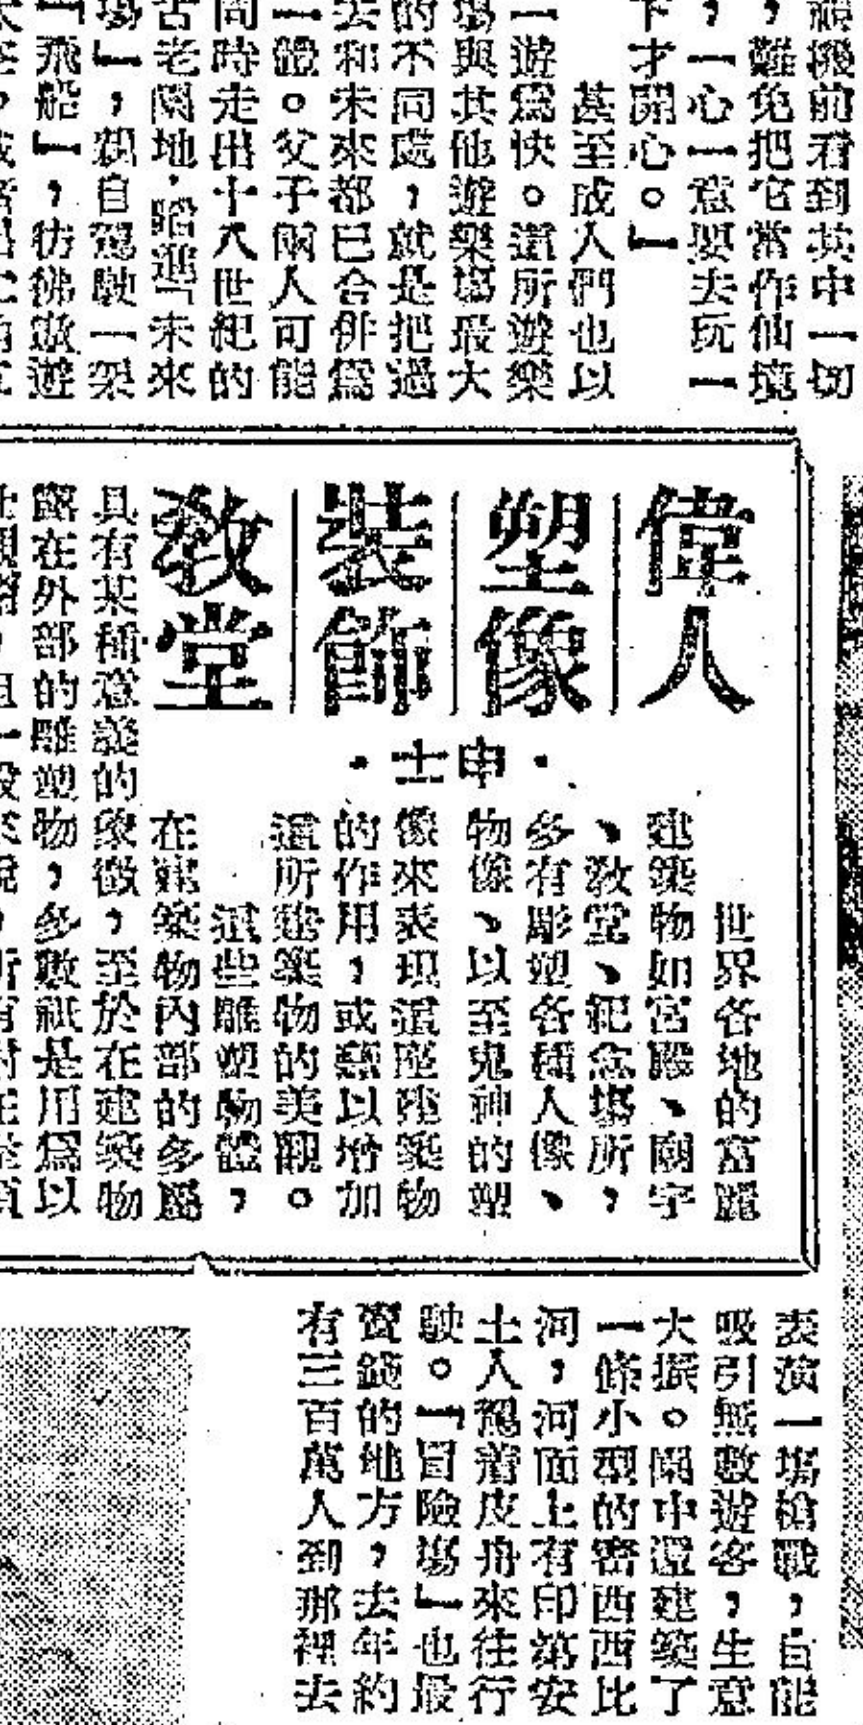 視機前看到其中一切
，難免把它當作仙境
，一心一意要去玩一
下才開心。」
甚至成人們也以
一遊爲快。這所遊樂
場與其他遊樂場最大
的不同處，就是把過
去和未來都已合併爲
一體。父子兩人可能
同時走出十八世紀的
古老園地，踏進「未來
場」，親自駕駛一架
「飛船」，彷彿遨遊
偉人
塑像
裝飾
教堂
·申士·
世界各地的富麗
建築物如宮殿、廟宇
、教堂、紀念場所，
多有彫塑各種人像、
物像、以至鬼神的塑
像來表現這座建築物
的作用，或藉以增加
這所建築物的美觀。
這些雕塑物體，
在建築物內部的多屬
具有某種意義的象徵，至於在建築物
露在外部的雕塑物，多數祇是用爲以
表演一場槍戰，自能
吸引無數遊客，生意
大振。園中還建築了
一條小型的密西西比
河，河面上有印第安
土人駕着皮舟來往行
駛。「冒險場」也最
賣錢的地方，去年約
有三百萬人到那裡去